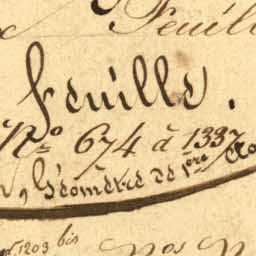 Feuill
Feuille.
No 674 à 1337
Géomètre de 1ère Cla
1203 bis
Nos